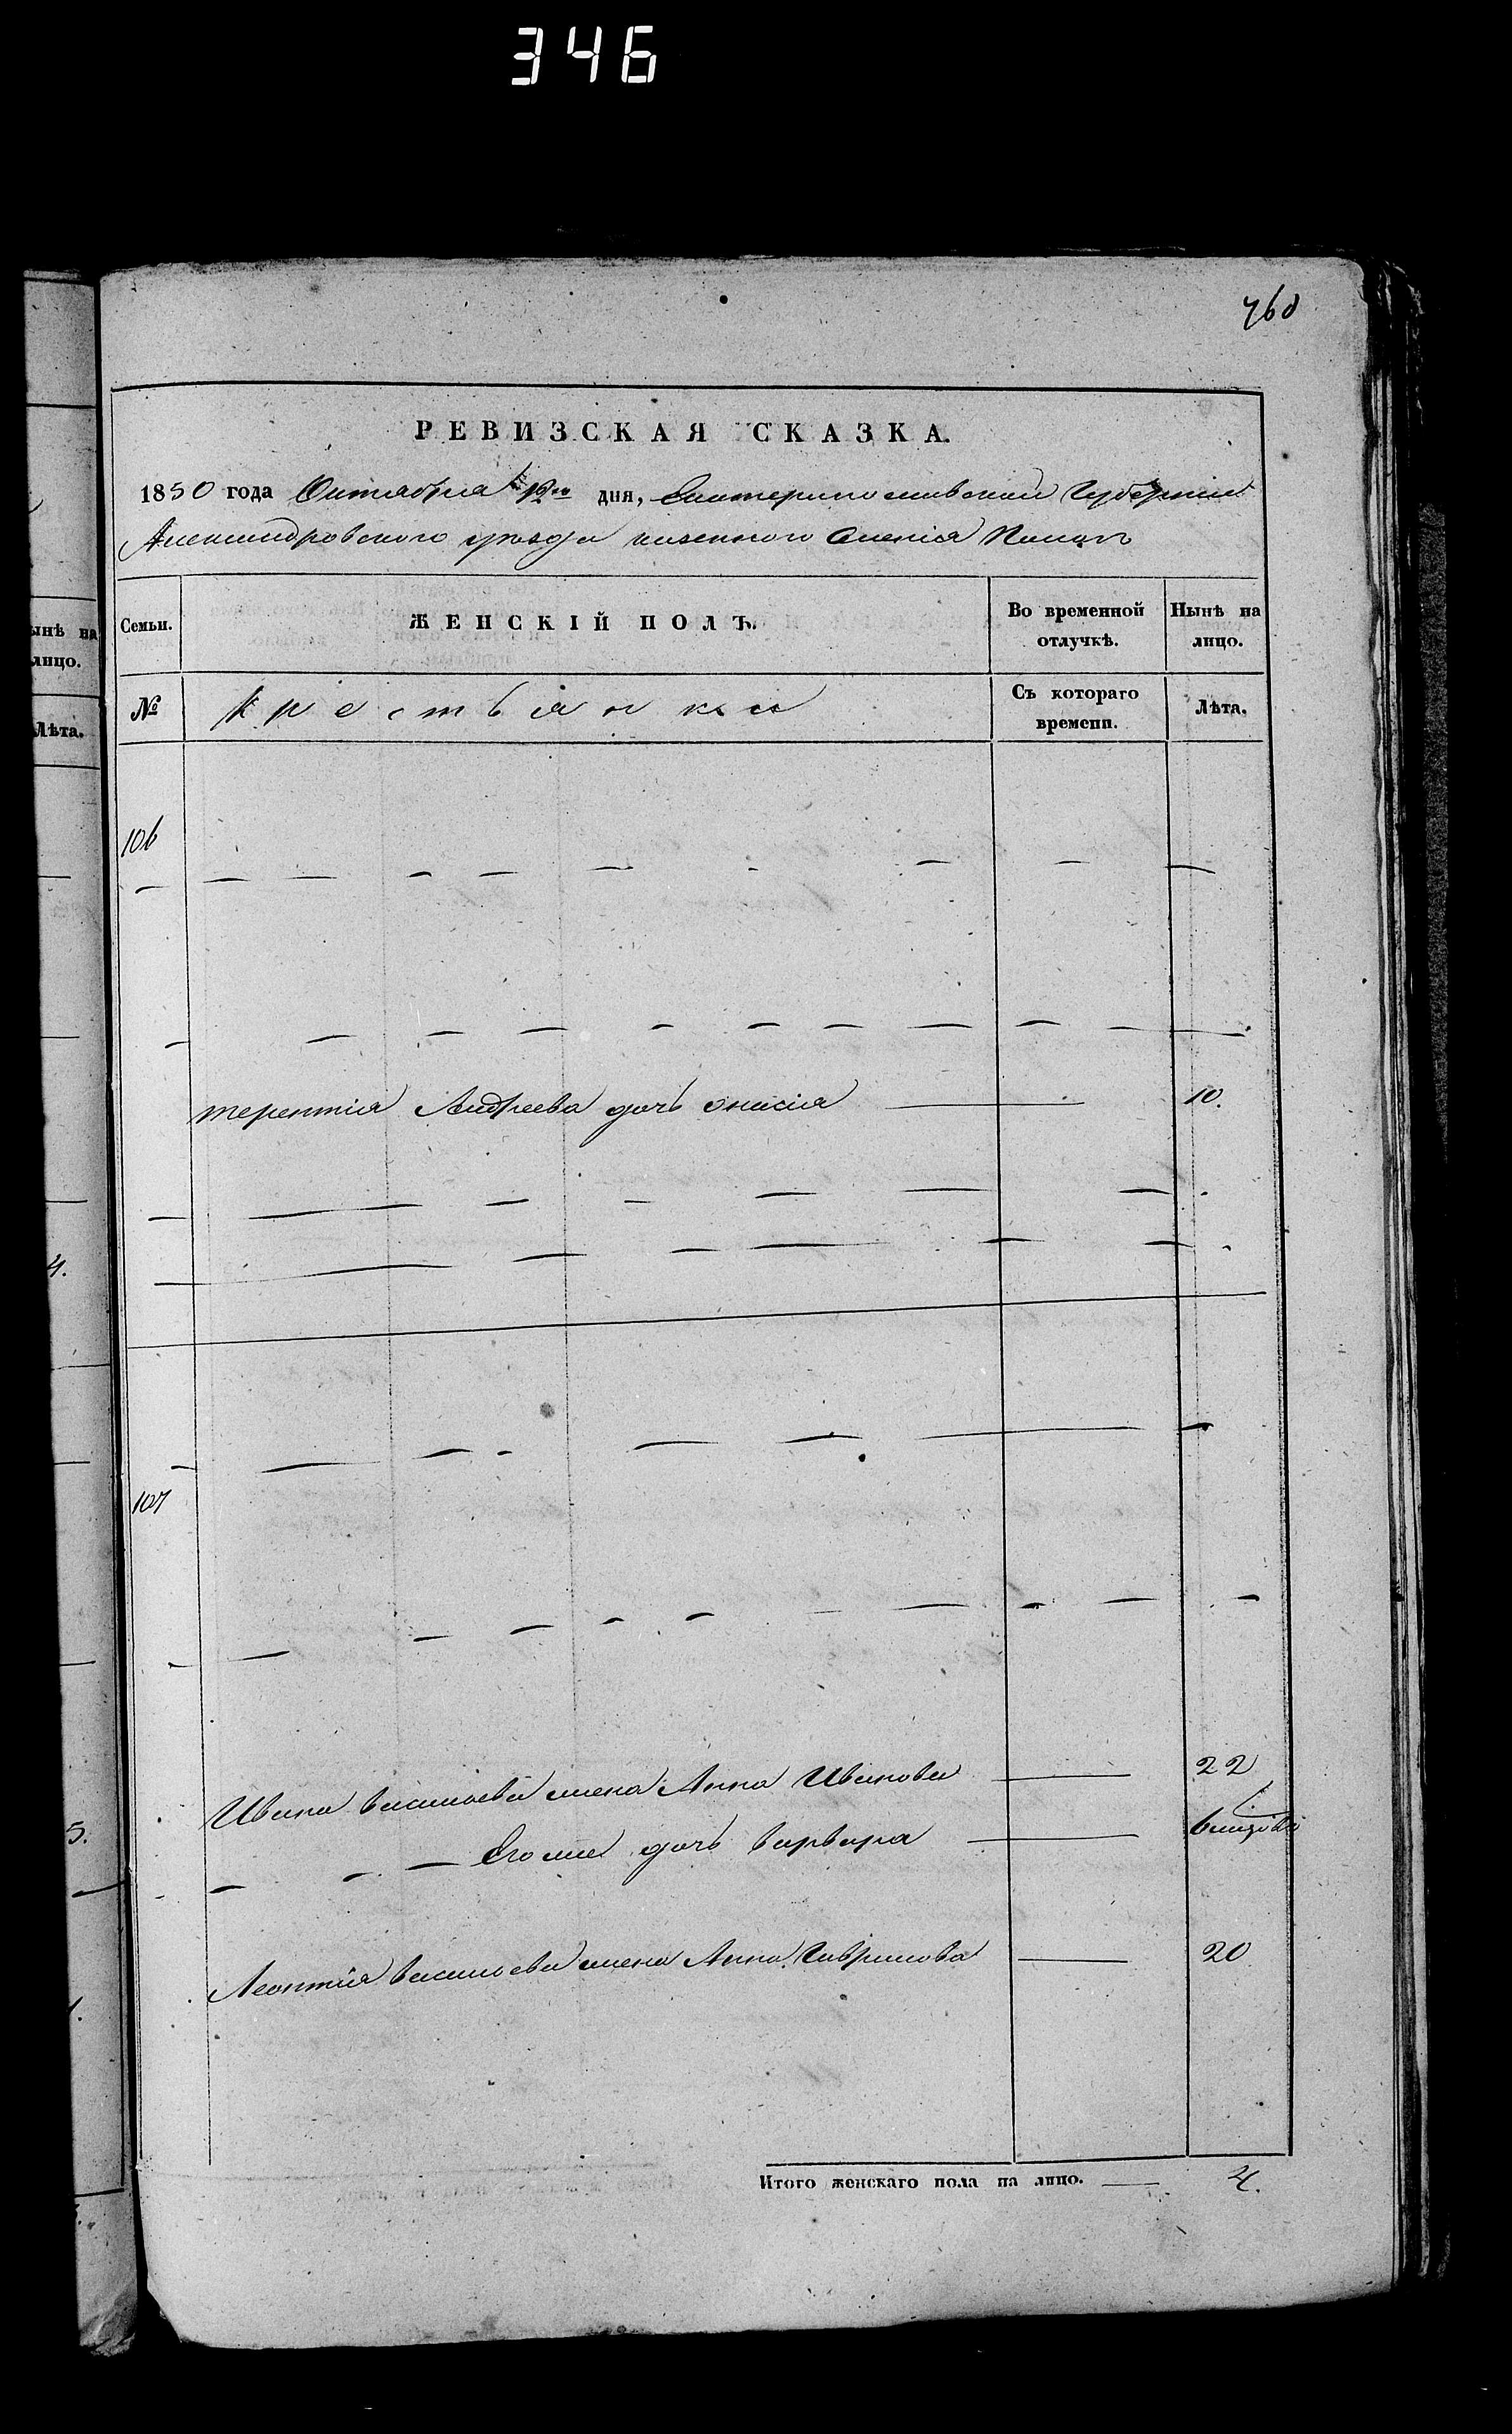 346
760
РЕВИЗСКАЯ СКАЗКА.
1850 года Октября дня, Екатеринославской Губернии
Александровского уезда казенного Селенія
Семьи. ЖЕНСКІЙ ПОЛЪ. Во временной отлучкѣ. Нынѣ на лицо.
№ Крестьянки Съ котораго времени. Лѣта.
ынѣ на
лицо.
Лѣта.
106
терентія Андреева дочь 10.
4.
107
Ивана васильева жена Анна Иванова 22
5.
Его же дочь варвара
Леонтія васильева жена Анна Гаврилова 20
Итого женскаго пола на лицо. 4.